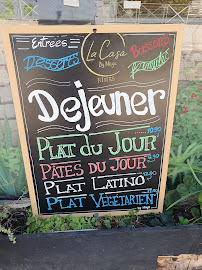 Entrées
Desserts
La Casa
By Maya
Boissons
Dejeuner
Plat du Jour
Pâtes du Jour
Plat Latino
Plat Végétarien